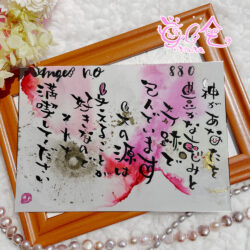 Angel NO
880
神があなたを
豊かな恵みと
奇跡で
包んでいます
その源は
与えることが
好きな
あなた
満喫してください